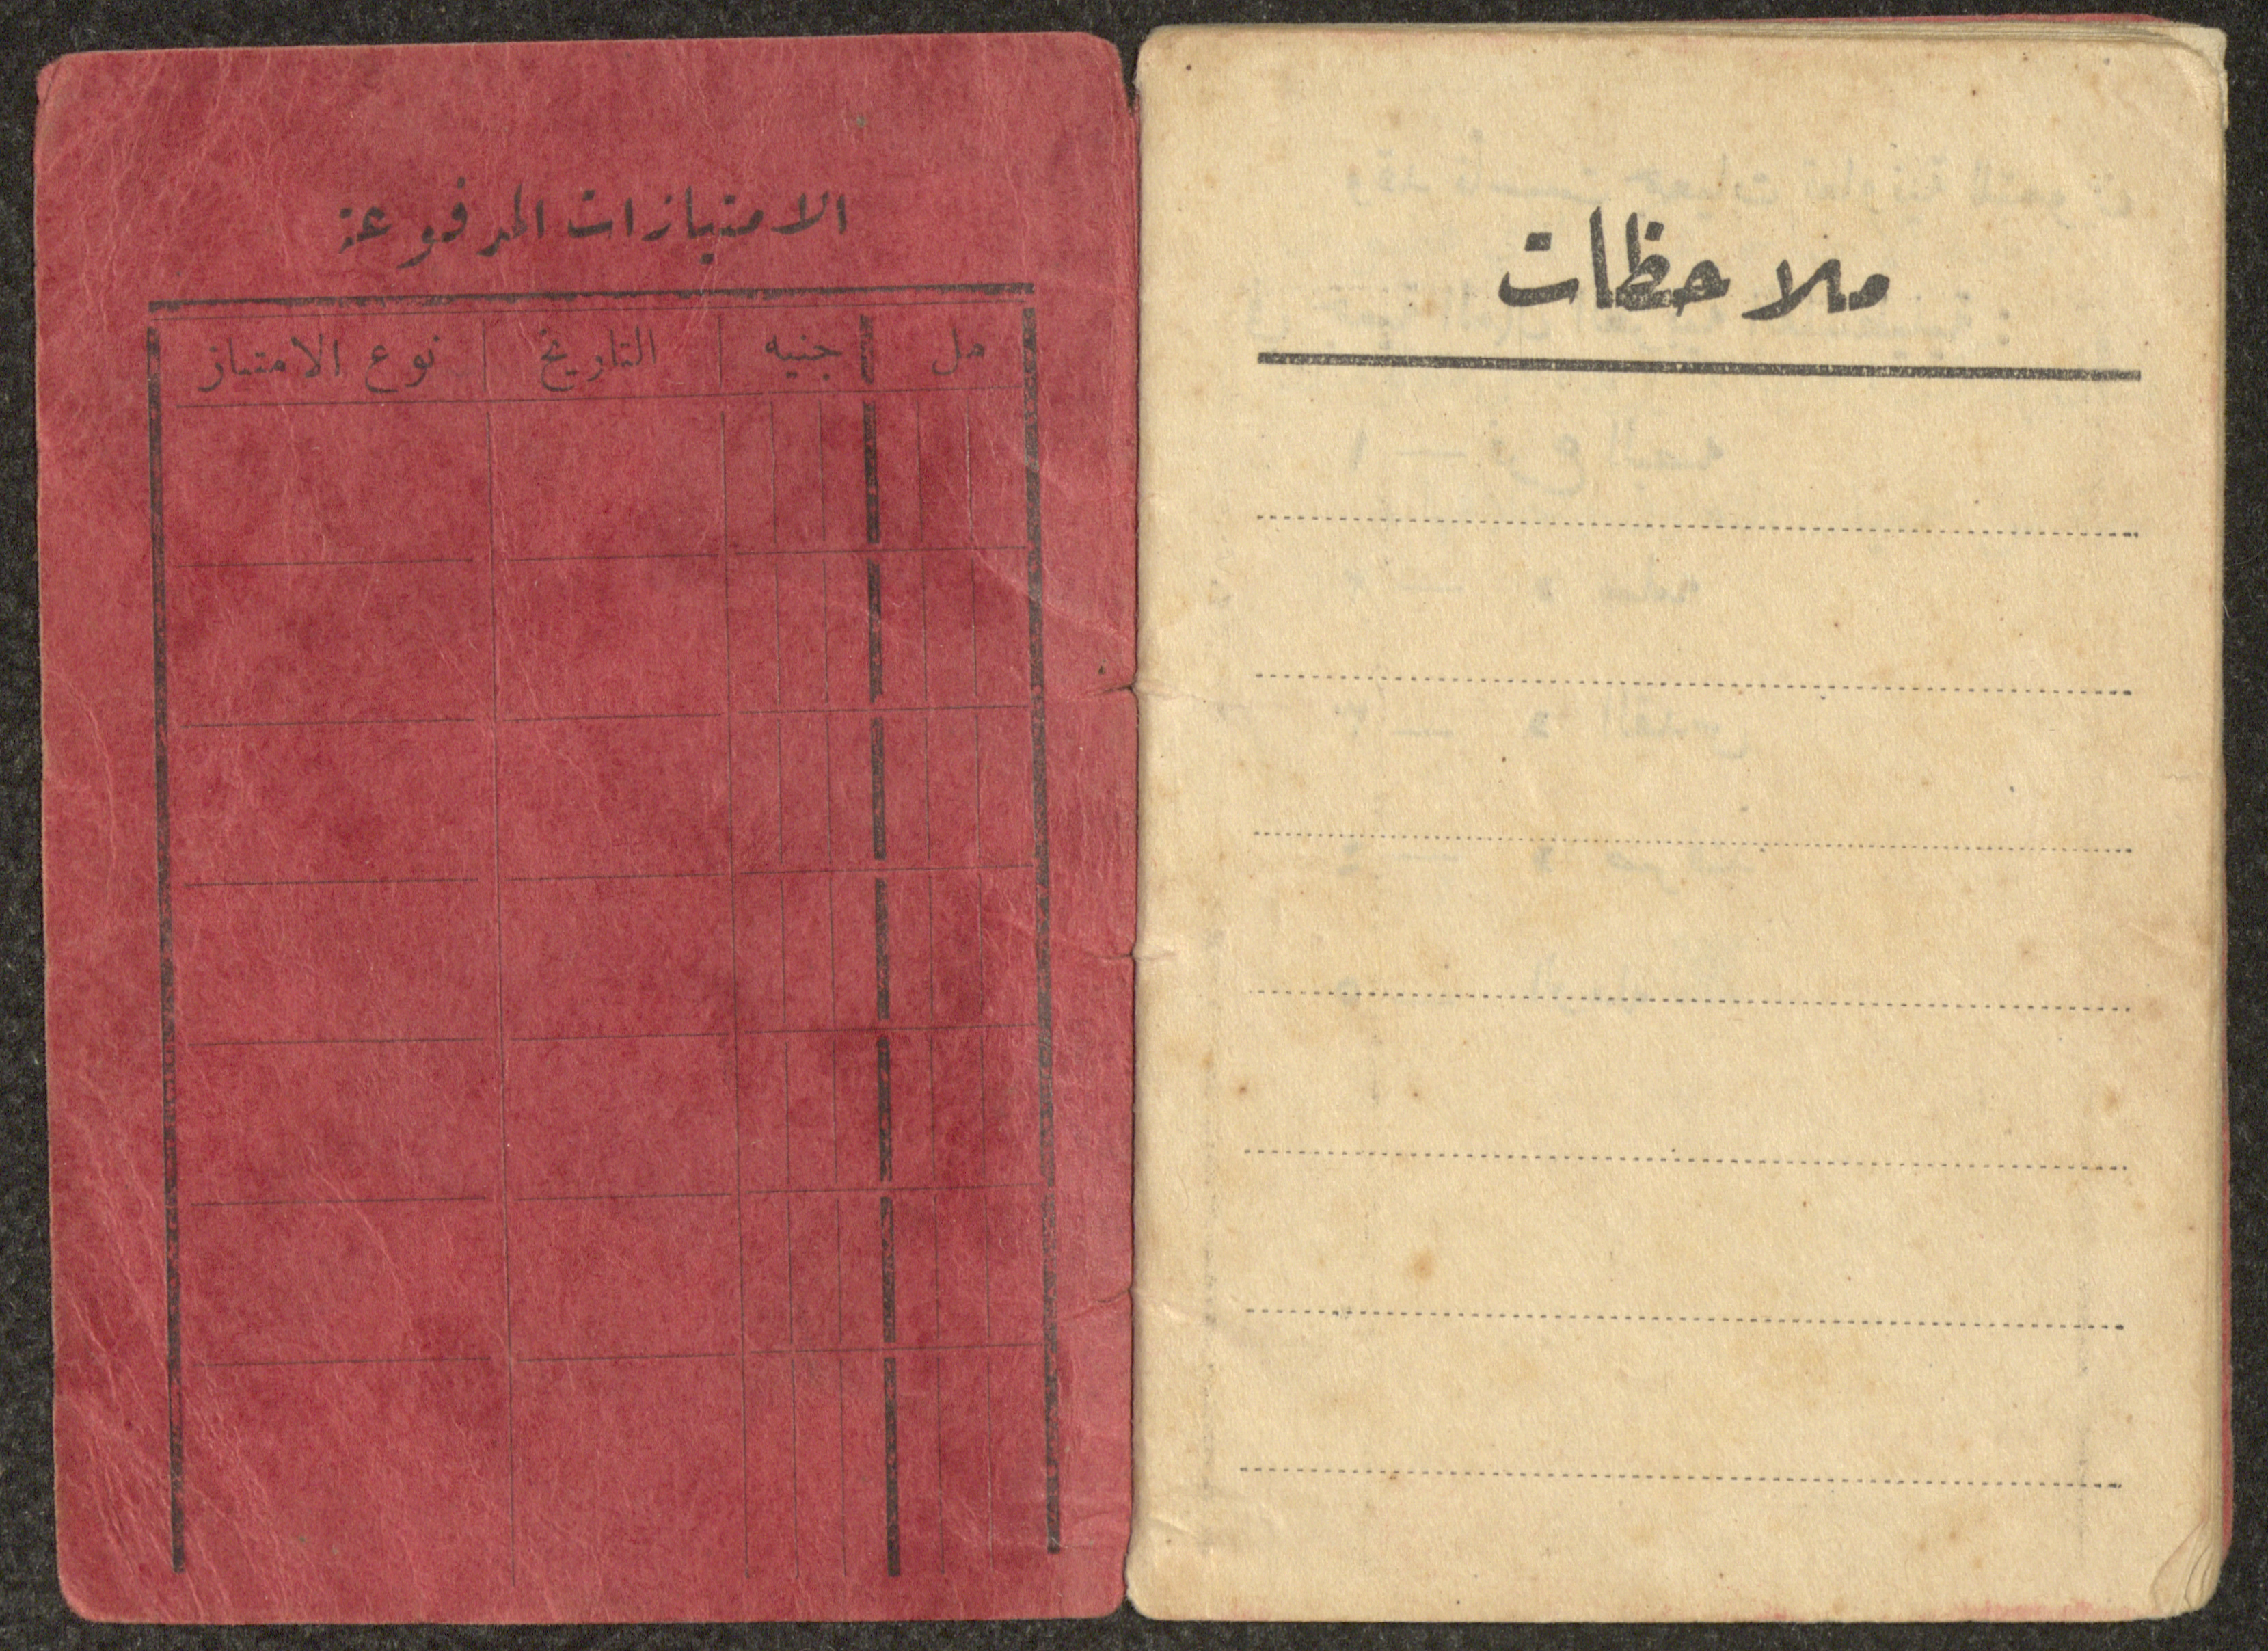 ملاحظات
الامتيازات المدفوعة
مل جنيه التاريخ نوع الامتياز